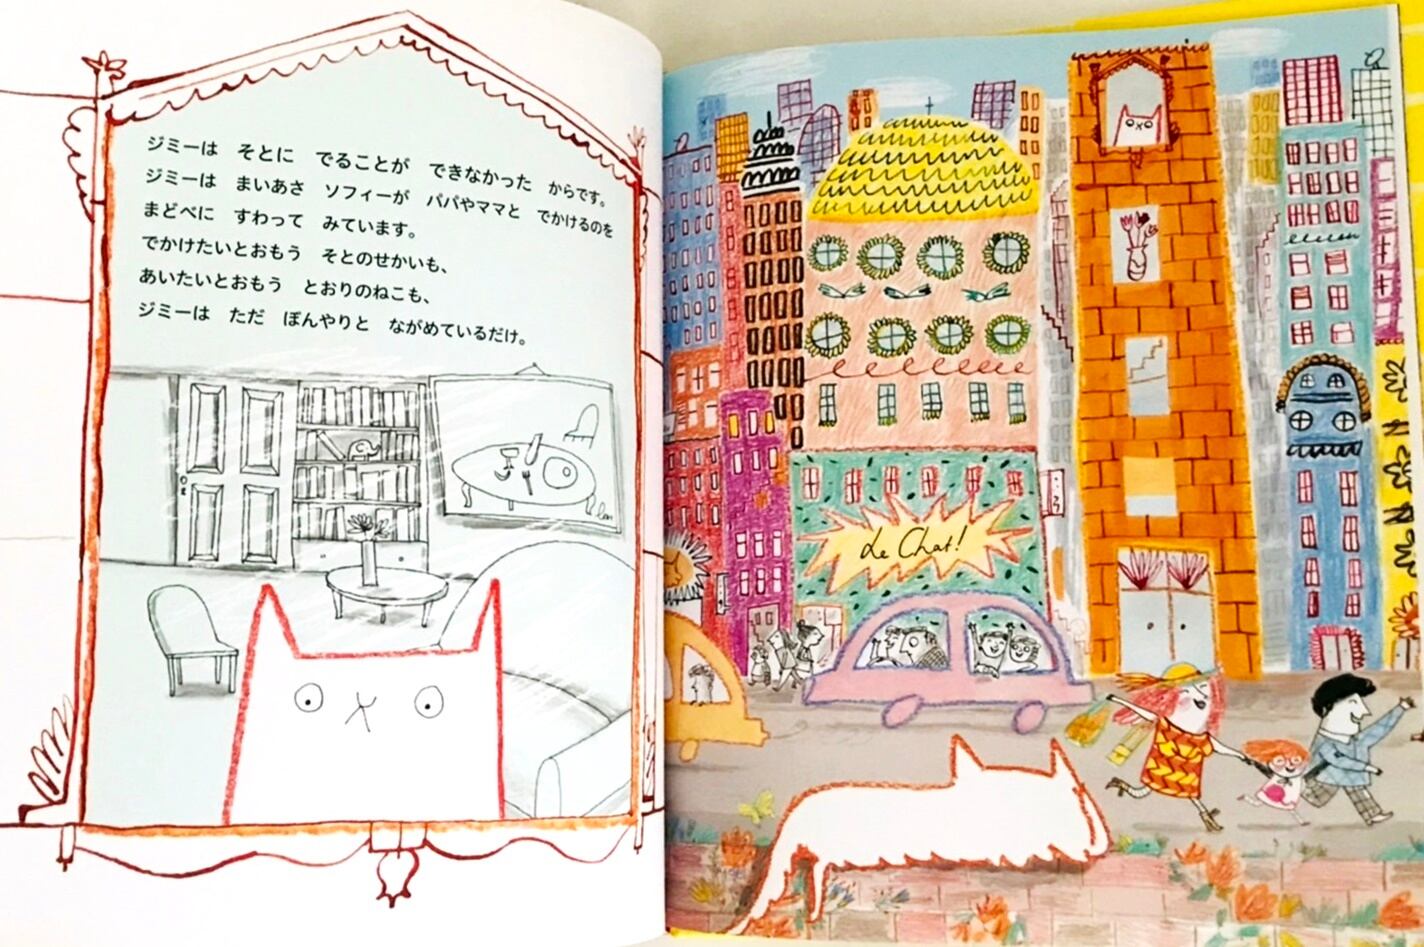 ジミーは　そとに　でることが　できなかった　からです。
ジミーは　まいあさ　ソフィーが　パパやママと　でかけるのを
まどべに　すわって　みています。
でかけたいとおもう　そとのせかいも、
あいたいとおもう　とおりのねこも、
ジミーは　ただ　ぼんやりと　ながめているだけ。
Le Chat!